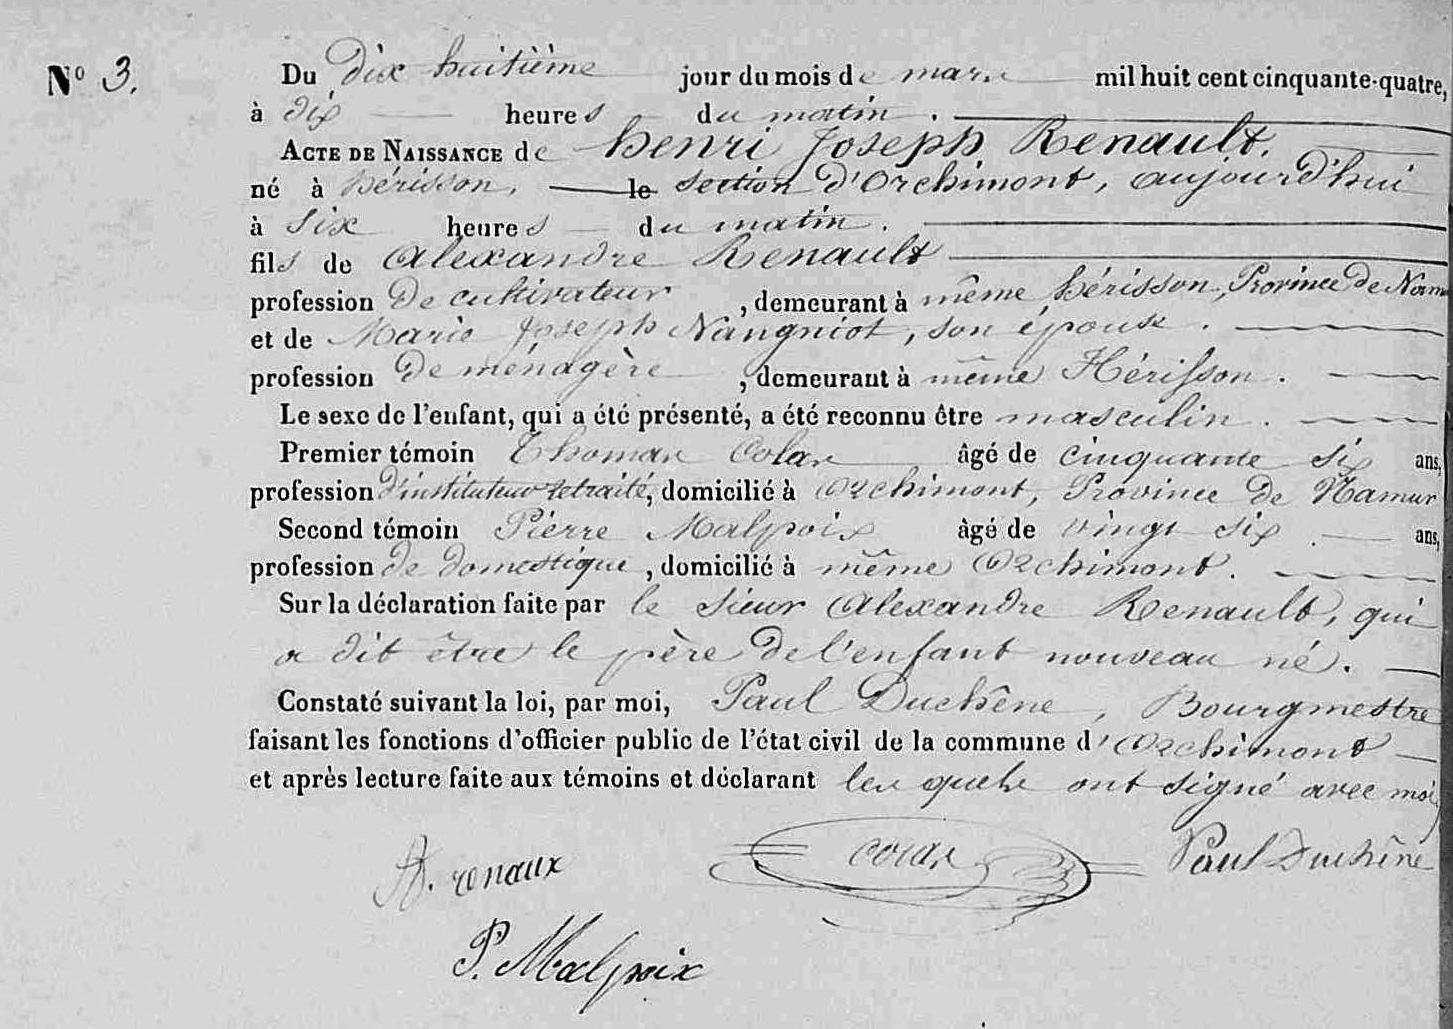 N° 3.
Du dix huitième jour du mois de mars mil huit cent cinquante-quatre,
à dix heures du matin.
ACTE DE NAISSANCE de henri Joseph Renault.
né à hérisson, le section d'Orchimont, aujourd'hui
à six heures du matin.
fils de Alexandre Renault
profession de cultivateur, demeurant à même hérisson, Province de Nam
et de Marie Joseph Nangniot, son épouse.
profession de ménagère, demeurant à même Hérisson.
Le sexe de l'enfant, qui a été présenté, a été reconnu être masculin.
Premier témoin Thomas Colas âgé de cinquante six ans,
profession d'instituteur retraité, domicilié à Orchimont, Province de Namur
Second témoin Pierre Malpoix âgé de vingt six ans,
profession de domestique, domicilié à même Orchimont.
Sur la déclaration faite par le sieur Alexandre Renault, qui
a dit être le père de l'enfant nouveau né.
Constaté suivant la loi, par moi, Paul Duchêne, Bourgmestre
faisant les fonctions d'officier public de l'état civil de la commune d'Orchimont
et après lecture faite aux témoins et déclarant les quels ont signé avec moi
A. renaux colas Paul Duchêne
P. Malpoix